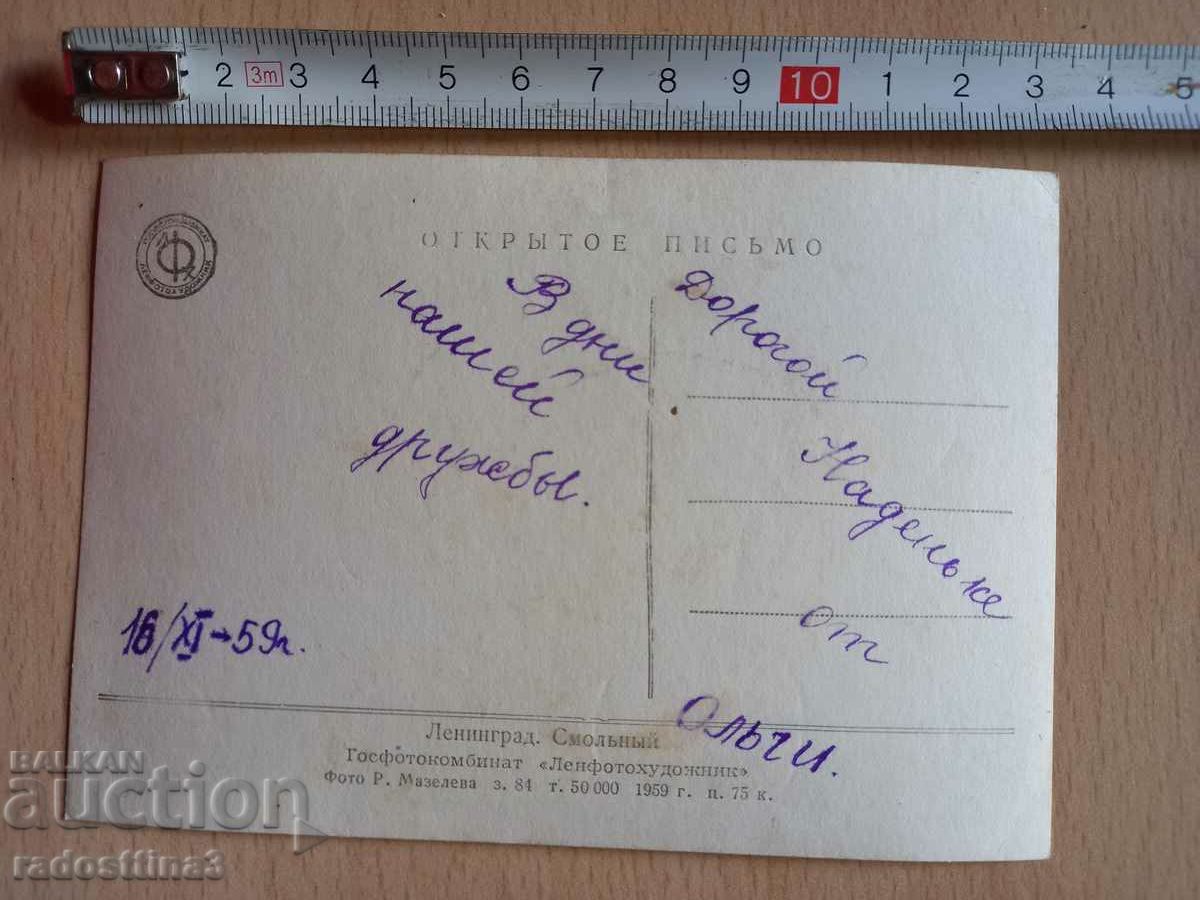 2 3m 3 4 5 6 7 8 9 10 1 2 3 4 5
ОТКРЫТОЕ ПИСЬМО
В дни
нашей
дружбы.
16/XI-59г.
Дорогой
Наденьке
от
Ольги.
Ленинград. Смольный
Госфотокомбинат «Ленфотохудожник»
Фото Р. Мазелева з. 84 т. 50 000 1959 г. ц. 75 к.
BALKAN
auction
radosttina3